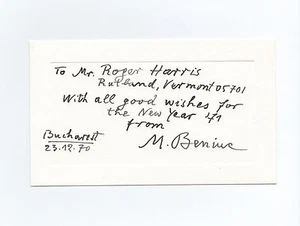 To Mr. Roger Harris
Rutland, Vermont 05701
With all good wishes for
the New Year '71
from
M. Beniuc
Bucharest
23.12.70